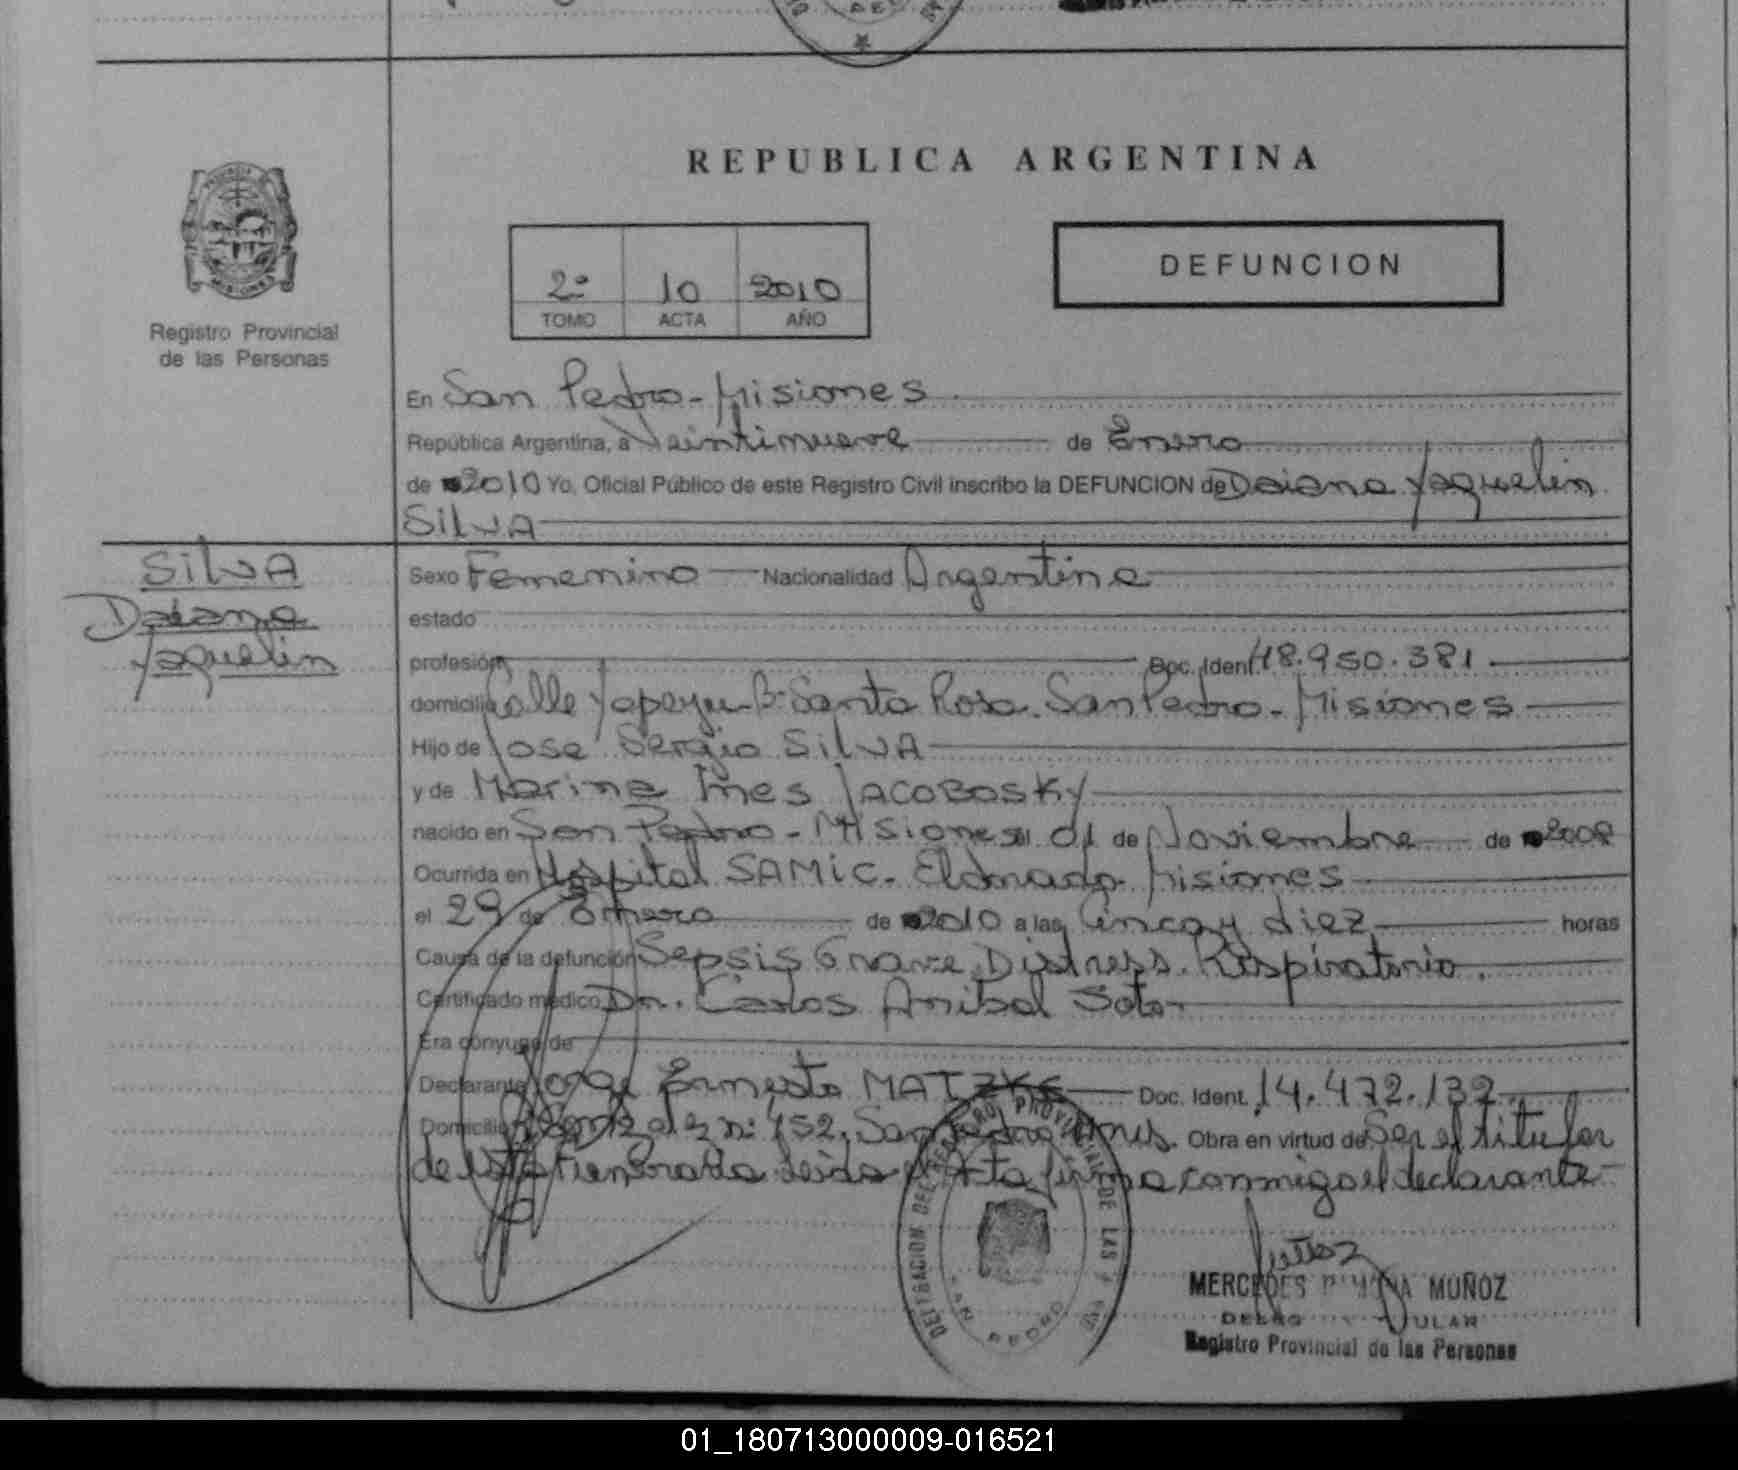 REPUBLICA ARGENTINA
2º 10 2010
TOMO ACTA AÑO
DEFUNCION
Registro Provincial
de las Personas
En San Pedro - Misiones
República Argentina, a Veintinueve de Enero
de 2010 Yo, Oficial Público de este Registro Civil inscribo la DEFUNCION de Daiana Yaquelin
SILVA
SILVA
Daiana
Yaquelin
Sexo Femenino Nacionalidad Argentina
estado
profesión Doc. Ident. 48.950.381
domicilio Calle Yapeyu Bº Santa Rosa. San Pedro - Misiones
Hijo de Jose Sergio SILVA
y de Marina Ines JACOBOSKY
nacido en San Pedro - Misiones el 01 de Noviembre de 2008
Ocurrida en Hospital SAMIC. Eldorado. Misiones
el 29 de Enero de 2010 a las Cinco y diez horas
Causa de la defunción Sepsis Grave. Distress. Respiratorio.
Certificado médico Dr. Carlos Anibal Soto
Era cónyuge de
Declarante Jorge Ernesto MATZKE Doc. Ident. 14.472.132
Domicilio nº 452, San Pedro Mnes. Obra en virtud de Ser el titular
de leida el Acta firma conmigo el declarante
DELEGACION DEL REGISTRO PROVINCIAL DE LAS
SAN PEDRO
MERCEDES MUÑOZ
Registro Provincial de las Personas
01_180713000009-016521